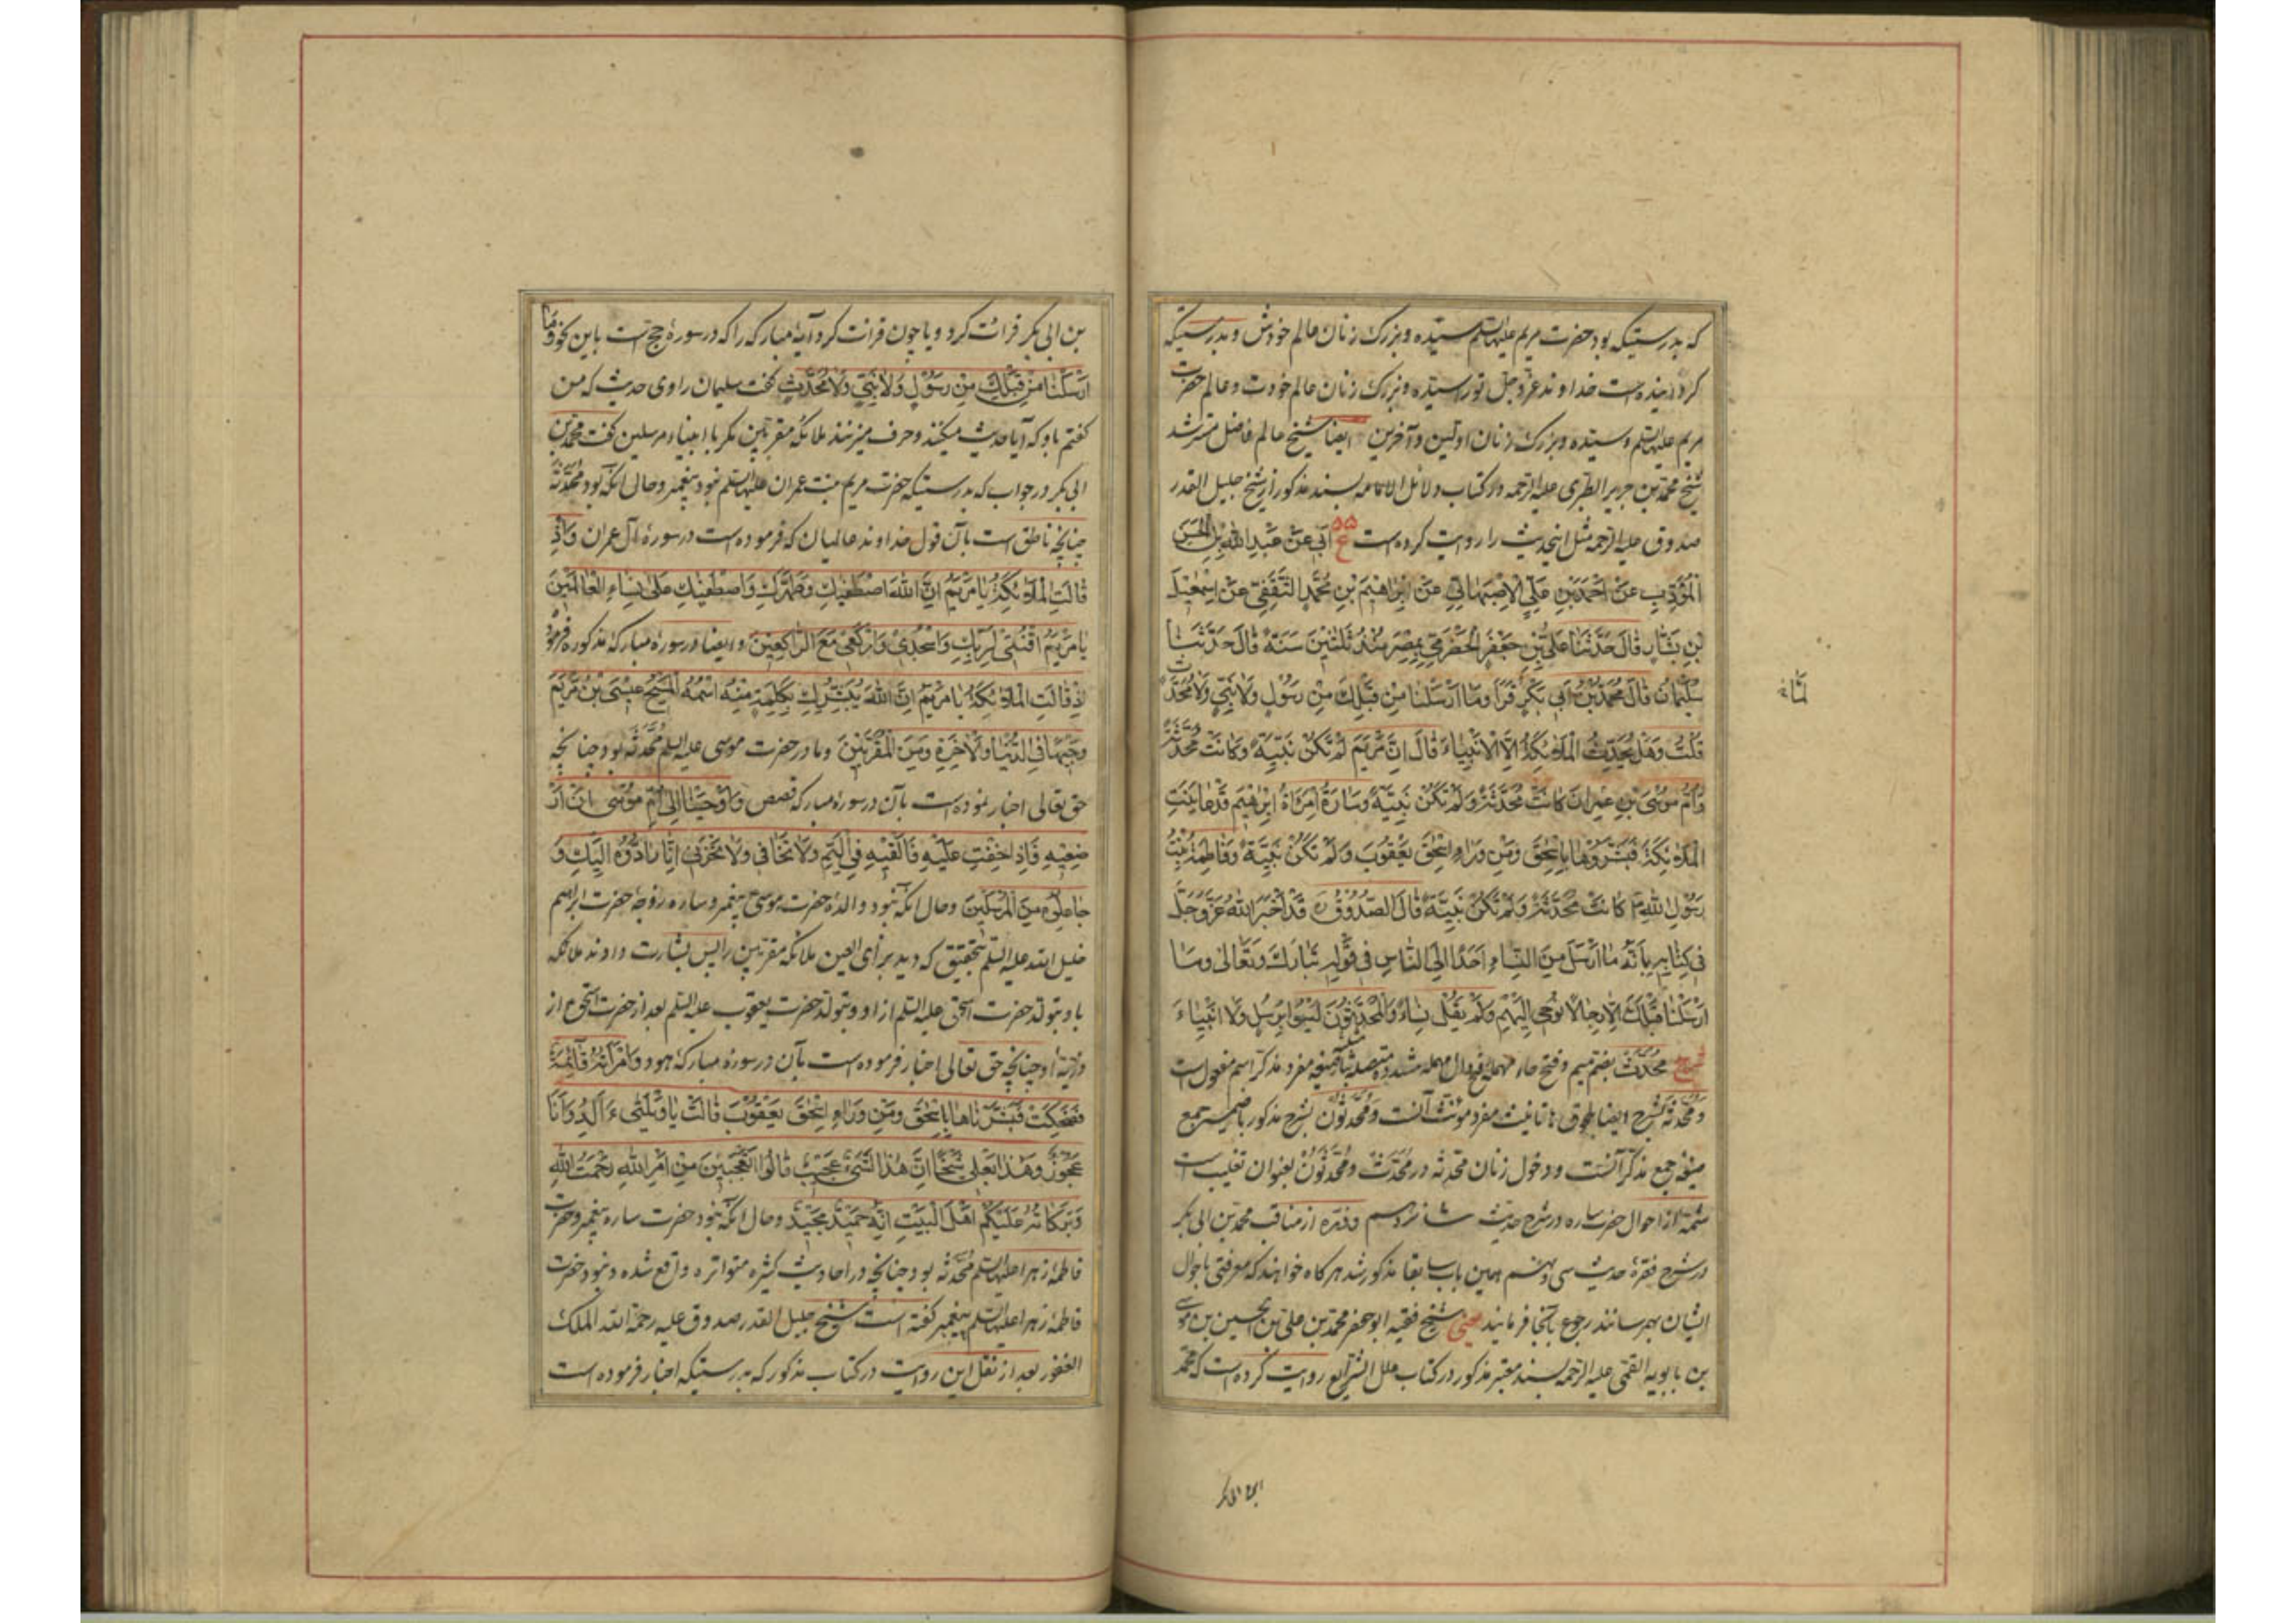 که بدرستیکه بود حضرت مریم علیها السلم سیّده و بزرک زنان عالم خودش و بدرستیکه
کردانیده است خداوند عزّ و جلّ تو را سیّده و بزرک زنان عالم خودت و عالم حضرت
مریم علیها السلم و سیّده و بزرک زنان اوّلین و آخرین ایضا شیخ عالم فاضل
شیخ محمّد بن جریر الطبری علیه الرحمه در کتاب دلائل الامامه بسند مذکور از شیخ جلیل القدر
صدوق علیه الرحمه مثل اینحدیث را روایت کرده است ۵۵ ع اَبی عَنْ عَبْدِ اللهِ بْنِ الْحَسَنِ
الْمُؤَدِّبِ عَنْ اَحْمَدَ بْنِ عَلِیٍّ الْاِصْبَهانِیِّ عَنْ اِبْراهیمَ بْنِ مُحَمَّدٍ الثَّقَفِیِّ عَنْ اِسْمٰعیلَ
بْنِ بَشّارٍ قالَ حَدَّثَنا عَلِیُّ بْنُ جَعْفَرٍ الْحَضْرَمِیُّ بِمِصْرَ مُنْذُ ثَلٰثینَ سَنَةً قالَ حَدَّثَنا
سُلَیْمانُ قالَ مُحَمَّدُ بْنُ اَبی بَکْرٍ قَرَأَ وَما اَرْسَلْنا مِنْ قَبْلِكَ مِنْ رَسُولٍ وَلا نَبِیٍّ وَلا مُحَدَّثٍ
قُلْتُ وَهَلْ یُحَدِّثُ الْمَلٰئِکَةُ اِلَّا الْاَنْبِیاءَ قالَ اِنَّ مَرْیَمَ لَمْ تَکُنْ نَبِیَّةً وَکانَتْ مُحَدَّثَةً
وَاُمُّ مُوسَی بْنِ عِمْرانَ کانَتْ مُحَدَّثَةً وَلَمْ تَکُنْ نَبِیَّةً وَسارَةُ امْرَأَةُ اِبْراهیمَ قَدْ عایَنَتِ
الْمَلٰئِکَةَ فَبَشَّرُوها بِاِسْحٰقَ وَمِنْ وَراءِ اِسْحٰقَ یَعْقُوبَ وَلَمْ تَکُنْ نَبِیَّةً وَفاطِمَةُ بِنْتُ
رَسُولِ اللهِ ص کانَتْ مُحَدَّثَةً وَلَمْ تَکُنْ نَبِیَّةً قالَ الصَّدُوقُ ره قَدْ اَخْبَرَ اللهُ عَزَّ وَجَلَّ
فی کِتابِهِ بِاَنَّهُ ما اَرْسَلَ مِنَ النِّساءِ اَحَدًا اِلَی النّاسِ فی قَوْلِهِ تَبارَكَ وَتَعالٰی وَما
اَرْسَلْنا قَبْلَكَ اِلّا رِجالًا نُوحی اِلَیْهِمْ وَلَمْ یَقُلْ نِساءً وَالْمُحَدَّثُونَ لَیْسُوا بِرُسُلٍ وَلا اَنْبِیاءَ
شرح مُحَدَّث بضم میم و فتح حاء مهمله و فتح دال مهمله مشدده صیغه مفرد مذکر اسم مفعول است
و مُحَدَّثَة بشرح ایضا بلحوق هاء تانیث مفرد مونث آنست و مُحَدَّثُون بشرح مذکور با ضمیر جمع
صیغه جمع مذکّر آنست و دخول زنان محدثه در مُحَدَّث و مُحَدَّثُونَ بعنوان تغلیب است
شمّه از احوال حضرت ساره در شرح حدیث شانزدهم و فقره از مناقب محمد بن ابی بکر
در شرح فقرهٔ حدیث سی و همین باب سابقا مذکور شد هر کاه خواهند که معرفتی باحوال
ایشان بهم رسانند رجوع بآنجا فرمایند شیخ فقیه ابو جعفر محمد بن علیّ بن الحسین بن موسی
بن بابویه القمّی علیه الرحمه بسند معتبر مذکور در کتاب علل الشرایع روایت کرده است که محمّد
بن ابی بکر قرائت کرد و یا چون قرائت کرد آیهٔ مبارکه را که در سورهٔ حج است باین نحو وَما
اَرْسَلْنا مِنْ قَبْلِكَ مِنْ رَسُولٍ وَلا نَبِیٍّ وَلا مُحَدَّثٍ کفت سلیمان راوی حدیث که من
کفتم باو که آیا حدیث میکنند و حرف میزنند ملائکهٔ مقرّبین مکر با انبیاء مرسلین کفت محمد بن
ابی بکر در جواب که بدرستیکه حضرت مریم بنت عمران علیها السلم نبود پیغمبر و حال آنکه بود مُحَدَّثَة
چنانچه ناطق است بآن قول خداوند عالمیان که فرموده است در سورهٔ آل عمران وَاِذْ
قالَتِ الْمَلٰئِکَةُ یا مَرْیَمُ اِنَّ اللهَ اصْطَفٰیكِ وَطَهَّرَكِ وَاصْطَفٰیكِ عَلٰی نِساءِ الْعالَمینَ
یا مَرْیَمُ اقْنُتی لِرَبِّكِ وَاسْجُدی وَارْکَعی مَعَ الرّاکِعینَ و ایضا در سورهٔ مبارکهٔ مذکوره فرمود
اِذْ قالَتِ الْمَلٰئِکَةُ یا مَرْیَمُ اِنَّ اللهَ یُبَشِّرُكِ بِکَلِمَةٍ مِنْهُ اسْمُهُ الْمَسیحُ عیسَی بْنُ مَرْیَمَ
وَجیهًا فِی الدُّنْیا وَالْاٰخِرَةِ وَمِنَ الْمُقَرَّبینَ و مادر حضرت موسی علیه السلم مُحَدَّثَه بود چنانچه
حق تعالی اخبار نموده است بآن در سورهٔ مبارکه قصص وَاَوْحَیْنا اِلٰی اُمِّ مُوسٰی اَنْ اَرْ
ضِعیهِ فَاِذا خِفْتِ عَلَیْهِ فَاَلْقیهِ فِی الْیَمِّ وَلا تَخافی وَلا تَحْزَنی اِنّا رادُّوهُ اِلَیْكِ وَ
جاعِلُوهُ مِنَ الْمُرْسَلینَ و حال آنکه نبود والدهٔ حضرت موسی ع پیغمبر و ساره زوجهٔ حضرت ابراهیم
خلیل الله علیه السلم بتحقیق که دید برأی العین ملائکه مقرّبین را پس بشارت دادند ملائکه
باو بتولد حضرت اسحق علیه السلم از او و بتولد حضرت یعقوب علیه السلم بعد از حضرت اسحق ع از
ذریّهٔ او چنانچه حق تعالی اخبار فرموده است بآن در سورهٔ مبارکهٔ هود وَامْرَأَتُهُ قائِمَةٌ
فَضَحِکَتْ فَبَشَّرْناها بِاِسْحٰقَ وَمِنْ وَراءِ اِسْحٰقَ یَعْقُوبَ قالَتْ یا وَیْلَتٰی ءَاَلِدُ وَاَنَا
عَجُوزٌ وَهٰذا بَعْلی شَیْخًا اِنَّ هٰذا لَشَیْءٌ عَجیبٌ قالُوا اَتَعْجَبینَ مِنْ اَمْرِ اللهِ رَحْمَتُ اللهِ
وَبَرَکاتُهُ عَلَیْکُمْ اَهْلَ الْبَیْتِ اِنَّهُ حَمیدٌ مَجیدٌ و حال آنکه نبود حضرت ساره پیغمبر و حضرت
فاطمهٔ زهرا علیها السلم مُحَدَّثه بود چنانچه در احادیث کثیره متواتره واقع شده و نبود حضرت
فاطمهٔ زهرا علیها السلم پیغمبر کفته است شیخ جلیل القدر صدوق علیه رحمة الله الملك
الغفور بعد از نقل این روایت در کتاب مذکور که بدرستیکه اخبار فرموده است